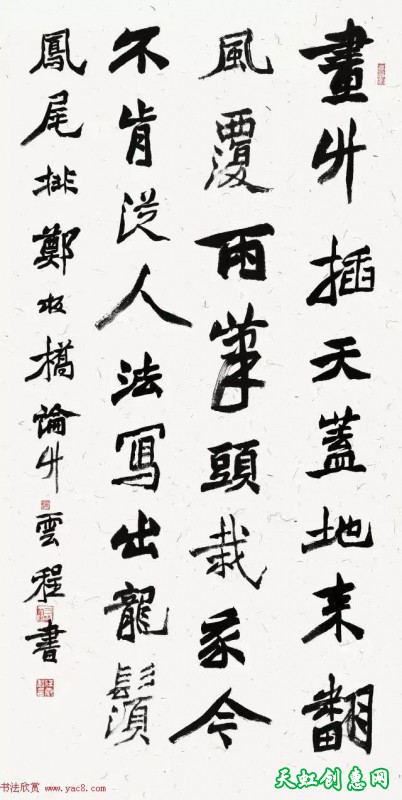 畫竹插天蓋地来翻
風覆雨筆頭栽我今
不肯從人法寫出龍鬚
鳳尾排鄭板橋論竹雲程書
书法欣赏 www.yac8.com
天虹创惠网